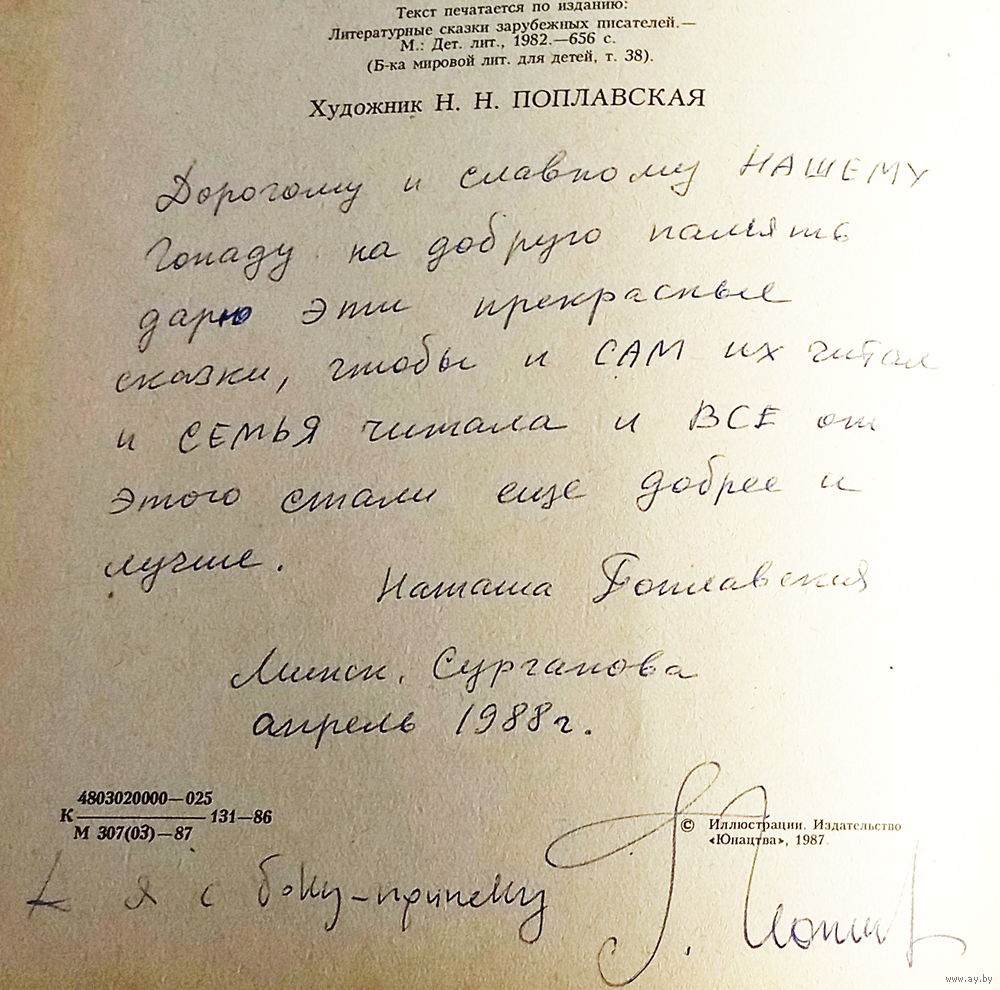 Текст печатается по изданию:
Литературные сказки зарубежных писателей.—
М.: Дет. лит., 1982.—656 с.
(Б-ка мировой лит. для детей, т. 38).
Художник Н. Н. ПОПЛАВСКАЯ
Дорогому и славному НАШЕМУ
на добрую память
дарю эти прекрасные
сказки, чтобы и САМ их читал
и СЕМЬЯ читала и ВСЕ от
этого стали еще добрее и
лучше.
Наташа Поплавская
Минск, Сурганова
апрель 1988 г.
4803020000—025
К 131—86
М 307(03)—87
© Иллюстрации. Издательство
«Юнацтва», 1987.
я с боку-припёку
www.ay.by